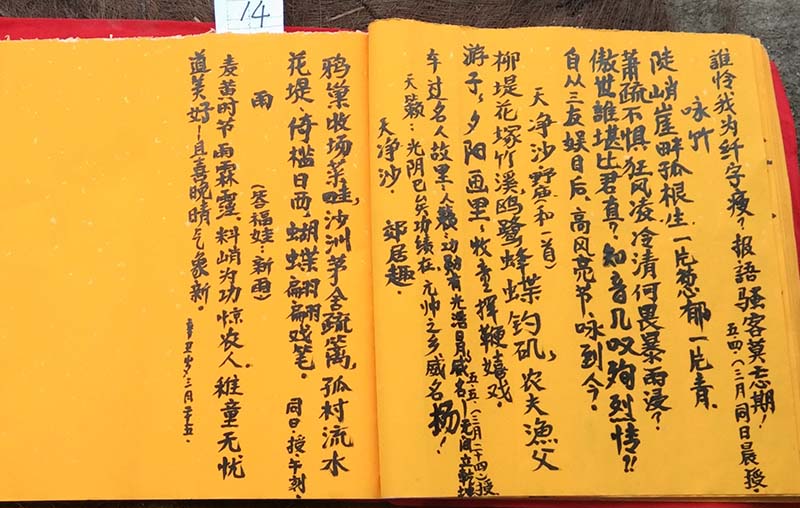 14
誰怜我为纤字瘦？报語骚客莫忘期！
五四.(二月同日晨授.
咏竹
陡峭崖畔孤根生.一片葱郁一片青.
萧疏不惧狂风凌冷清何畏暴雨浸？
傲世誰堪比君直？知音几叹殉烈情?!
自从三友娱目后.高风亮节咏到今.
天净沙 野㒷(和一首)
柳堤花塚竹溪,鸥鹭蜂蝶钓矶,农夫漁父
游子,夕阳画里,牧童揮鞭嬉戏.
五五.(二月二十四)授.
车过名人故里,人
天籁:光阴已矣功绩在.元帅之乡威名扬！
天净沙. 郊居趣.
鸦巢收场菜畦,沙洲茅舍疏篱,孤村流水
花堤.倚槛日西,蝴蝶翩翩戏笔.
同日.授午刻.
雨 (答福娃:新雨)
麦苗时节雨霖霪.料峭为功惊农人.稚童无忧
道美好!且喜晚晴气象新.
辛丑岁三月二十五.